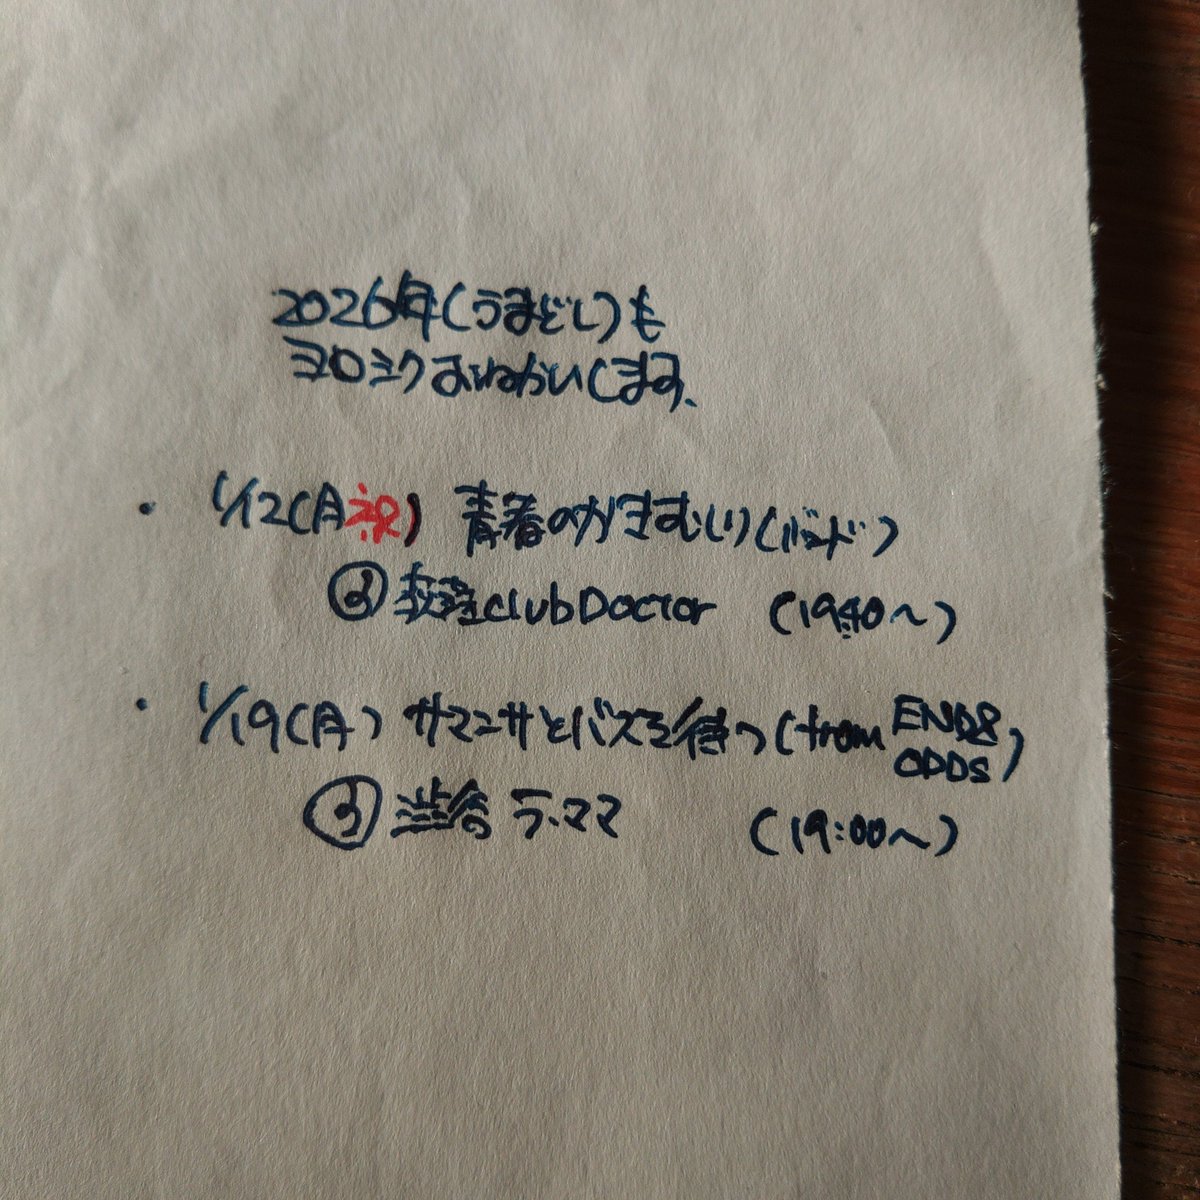 2026年(うまどし)も
ヨロシクおねがいします、
・ 1/12(月祝) 青春のかきむしり(バンド)
@ 荻窪clubDoctor (19:40〜)
・ 1/19(月) サマンサとバスを待つ(from ENDS&ODDS)
@ 渋谷 ラ・ママ (19:00〜)